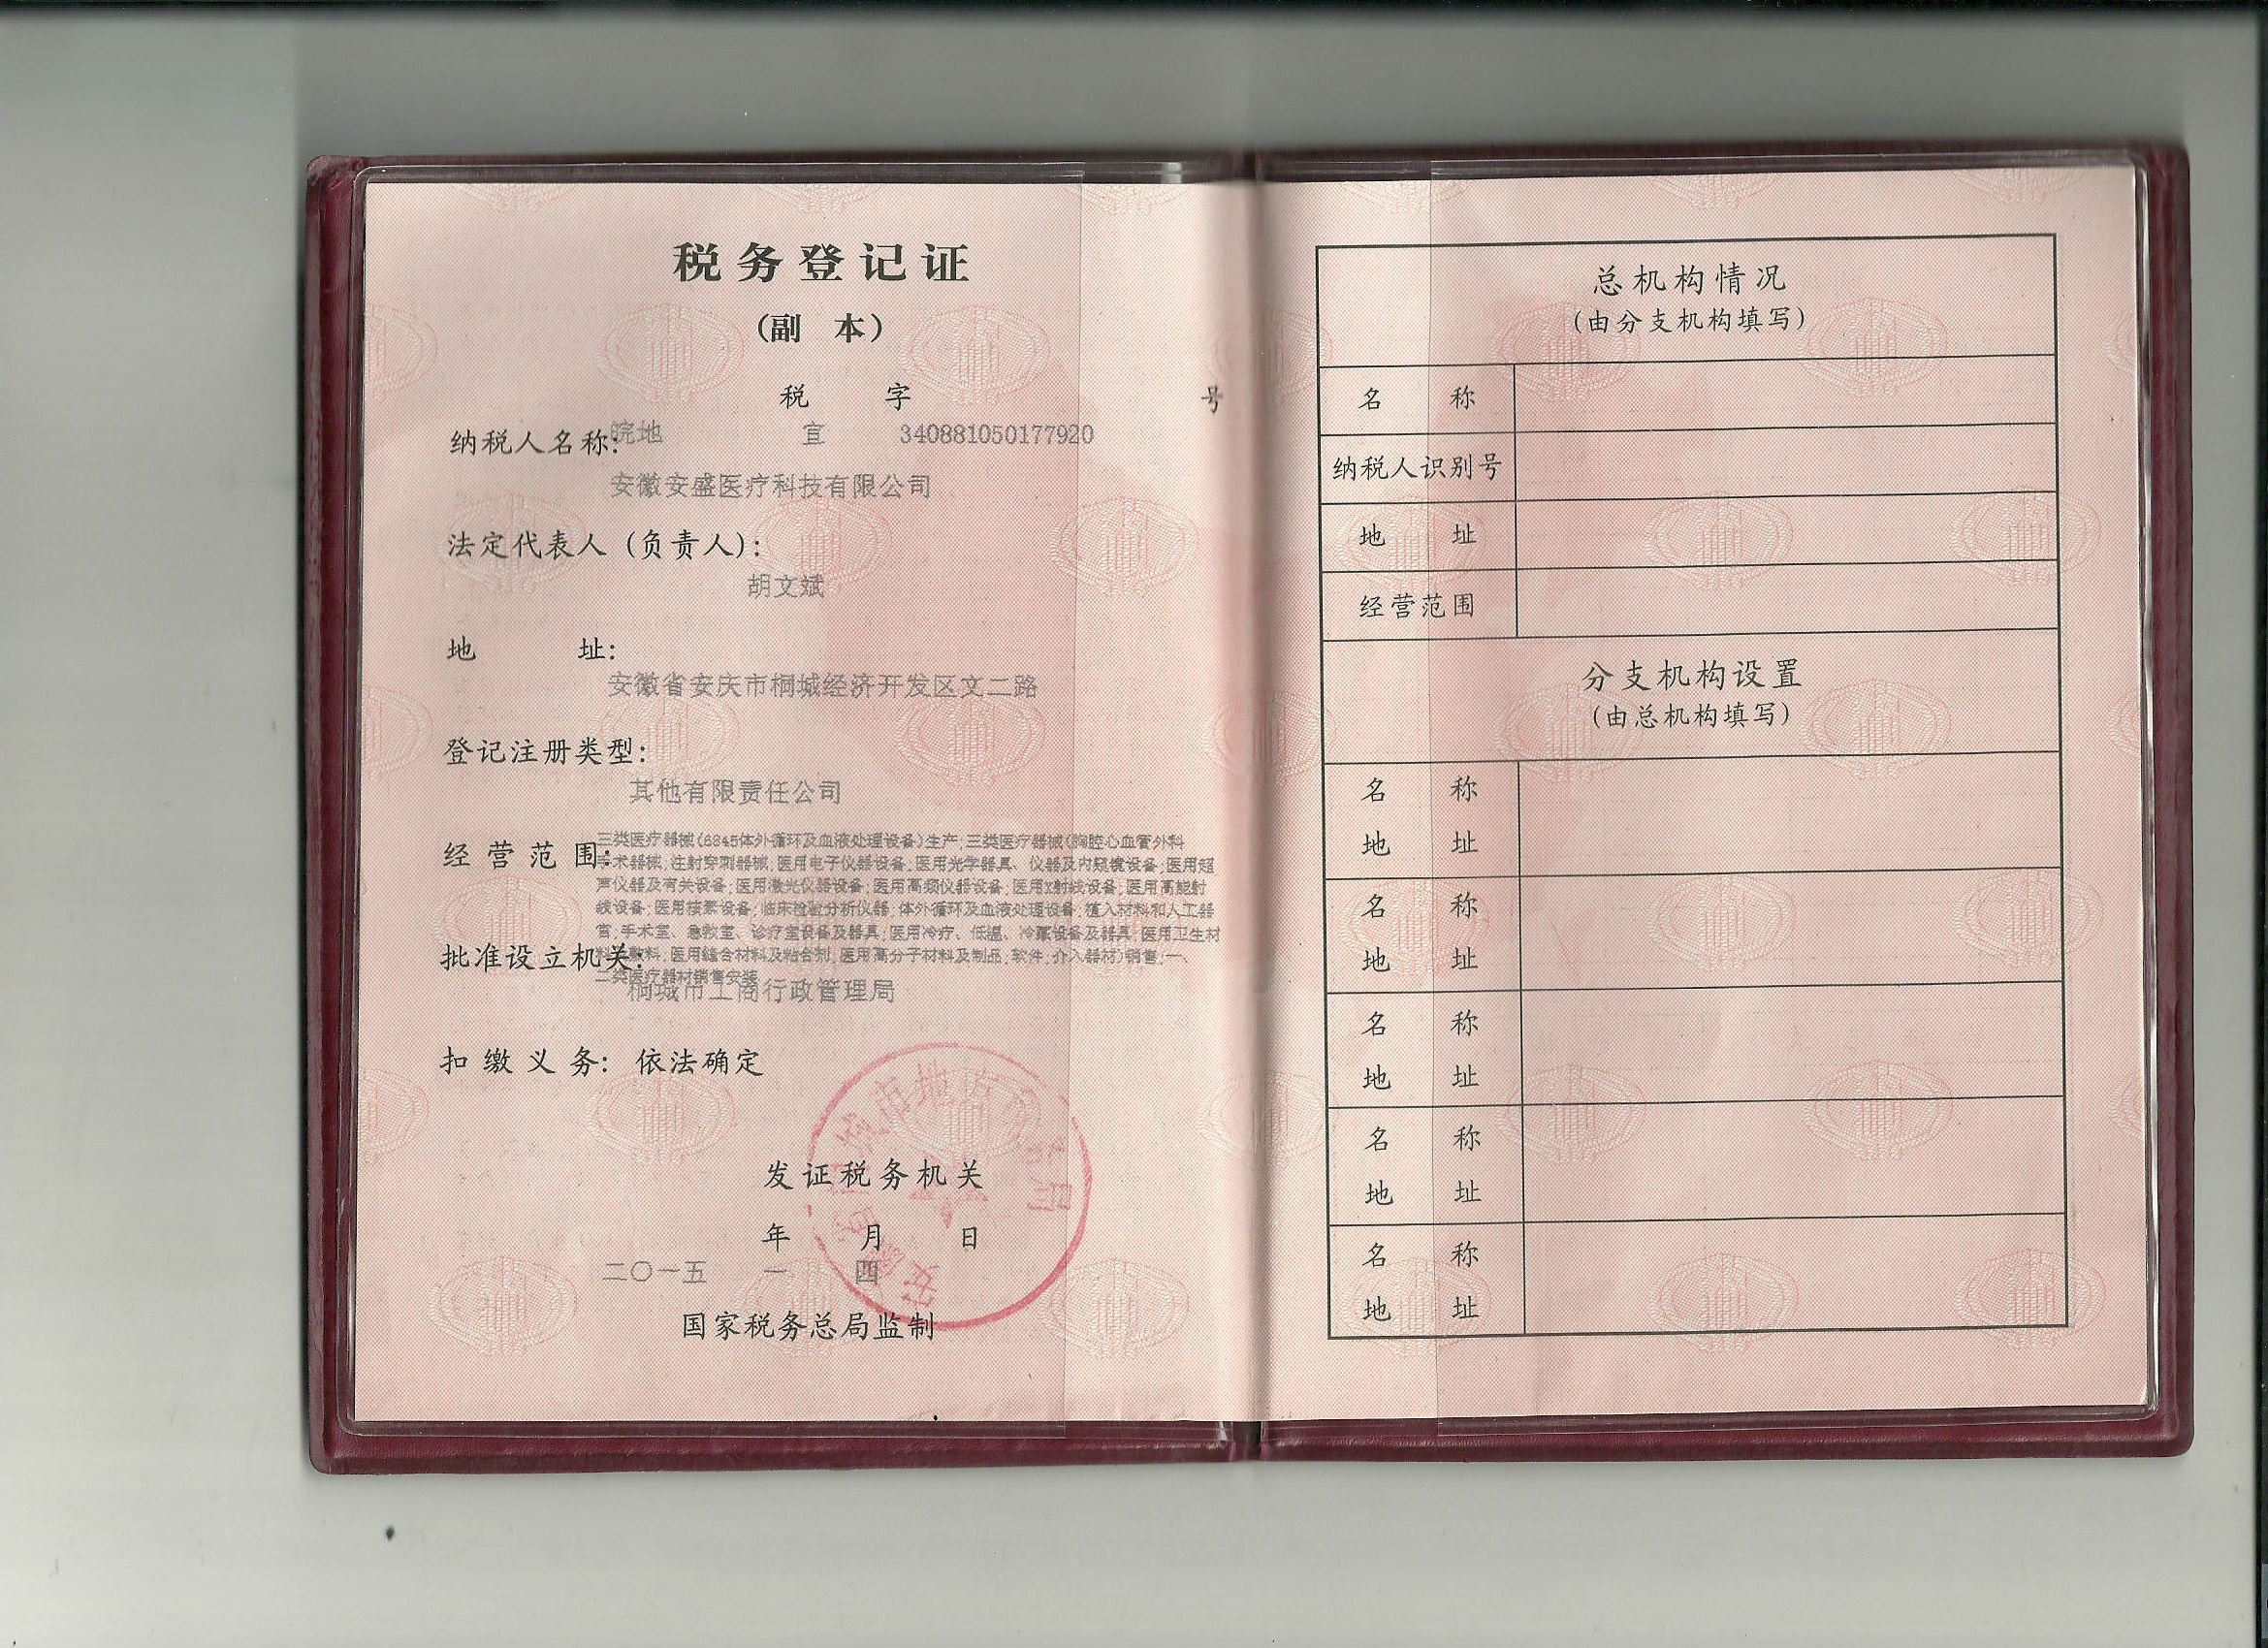 税务登记证
(副 本)
税 字 号
皖地 宜 340881050177920
纳税人名称:
安徽安盛医疗科技有限公司
法定代表人(负责人):
胡文斌
地 址:
安徽省安庆市桐城经济开发区文二路
登记注册类型:
其他有限责任公司
经营范围:
三类医疗器械(6845体外循环及血液处理设备)生产;三类医疗器械(胸腔心血管外科
手术器械;注射穿刺器械;医用电子仪器设备;医用光学器具、仪器及内窥镜设备;医用超
声仪器及有关设备;医用激光仪器设备;医用高频仪器设备;医用X射线设备;医用高能射
线设备;医用核素设备;临床检验分析仪器;体外循环及血液处理设备;植入材料和人工器
官;手术室、急救室、诊疗室设备及器具;医用冷疗、低温、冷藏设备及器具;医用卫生材
料及敷料;医用缝合材料及粘合剂;医用高分子材料及制品;软件;介入器材)销售;一、
二类医疗器材销售安装
批准设立机关:
桐城市工商行政管理局
扣缴义务: 依法确定
发证税务机关
年 月 日
二〇一五 一 四
国家税务总局监制
总机构情况
(由分支机构填写)
名 称
纳税人识别号
地 址
经营范围
分支机构设置
(由总机构填写)
名 称
地 址
名 称
地 址
名 称
地 址
名 称
地 址
名 称
地 址